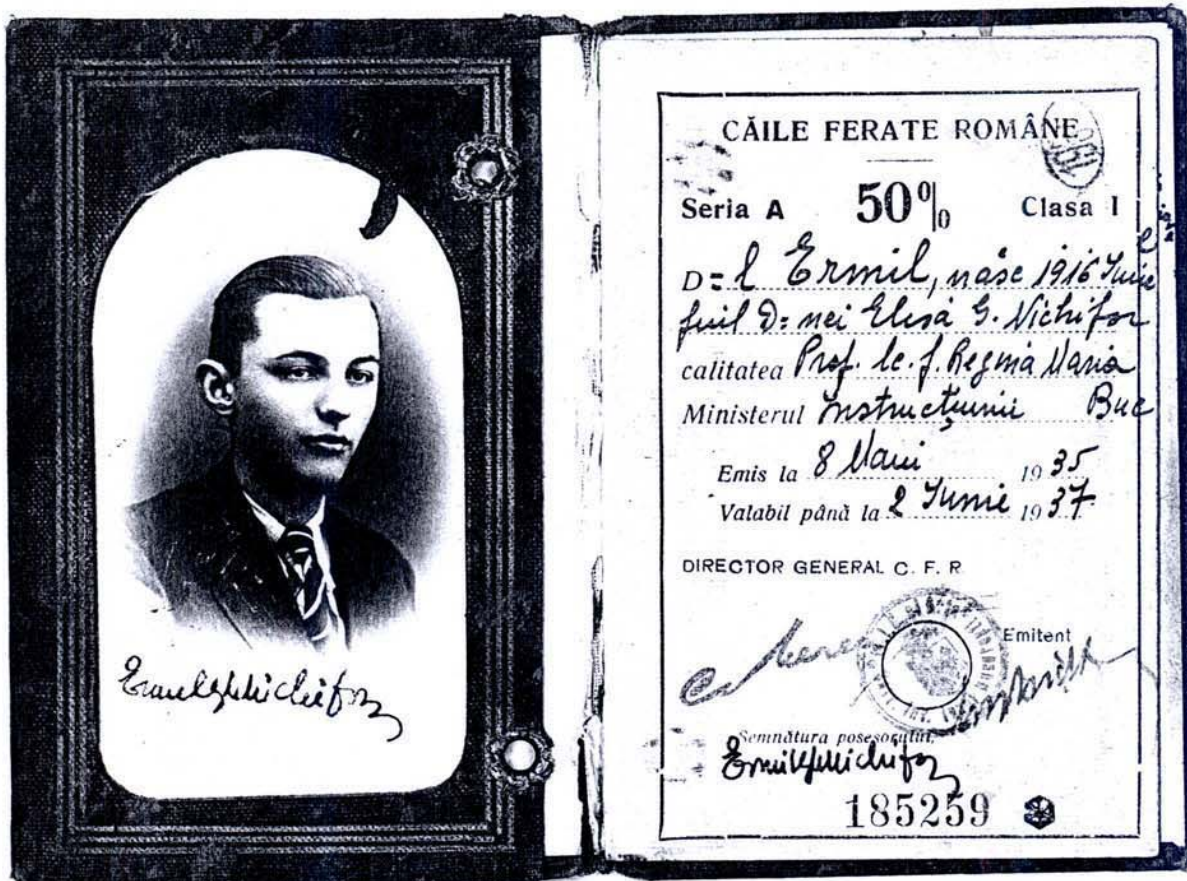 Ermil G. Nichifor
CĂILE FERATE ROMÂNE
Seria A 50% Clasa I
D=l Ermil, născ 1916 Iunie
fiul D=nei Elisa G. Nichifor
calitatea Prof. lc. f. Regina Maria
Ministerul Instrucțiunii Buc
Emis la 8 Maiu 1935
Valabil până la 2 Iunie 1937
DIRECTOR GENERAL C. F. R
Emitent
Semnătura posesorului,
Ermil G Nichifor
185259